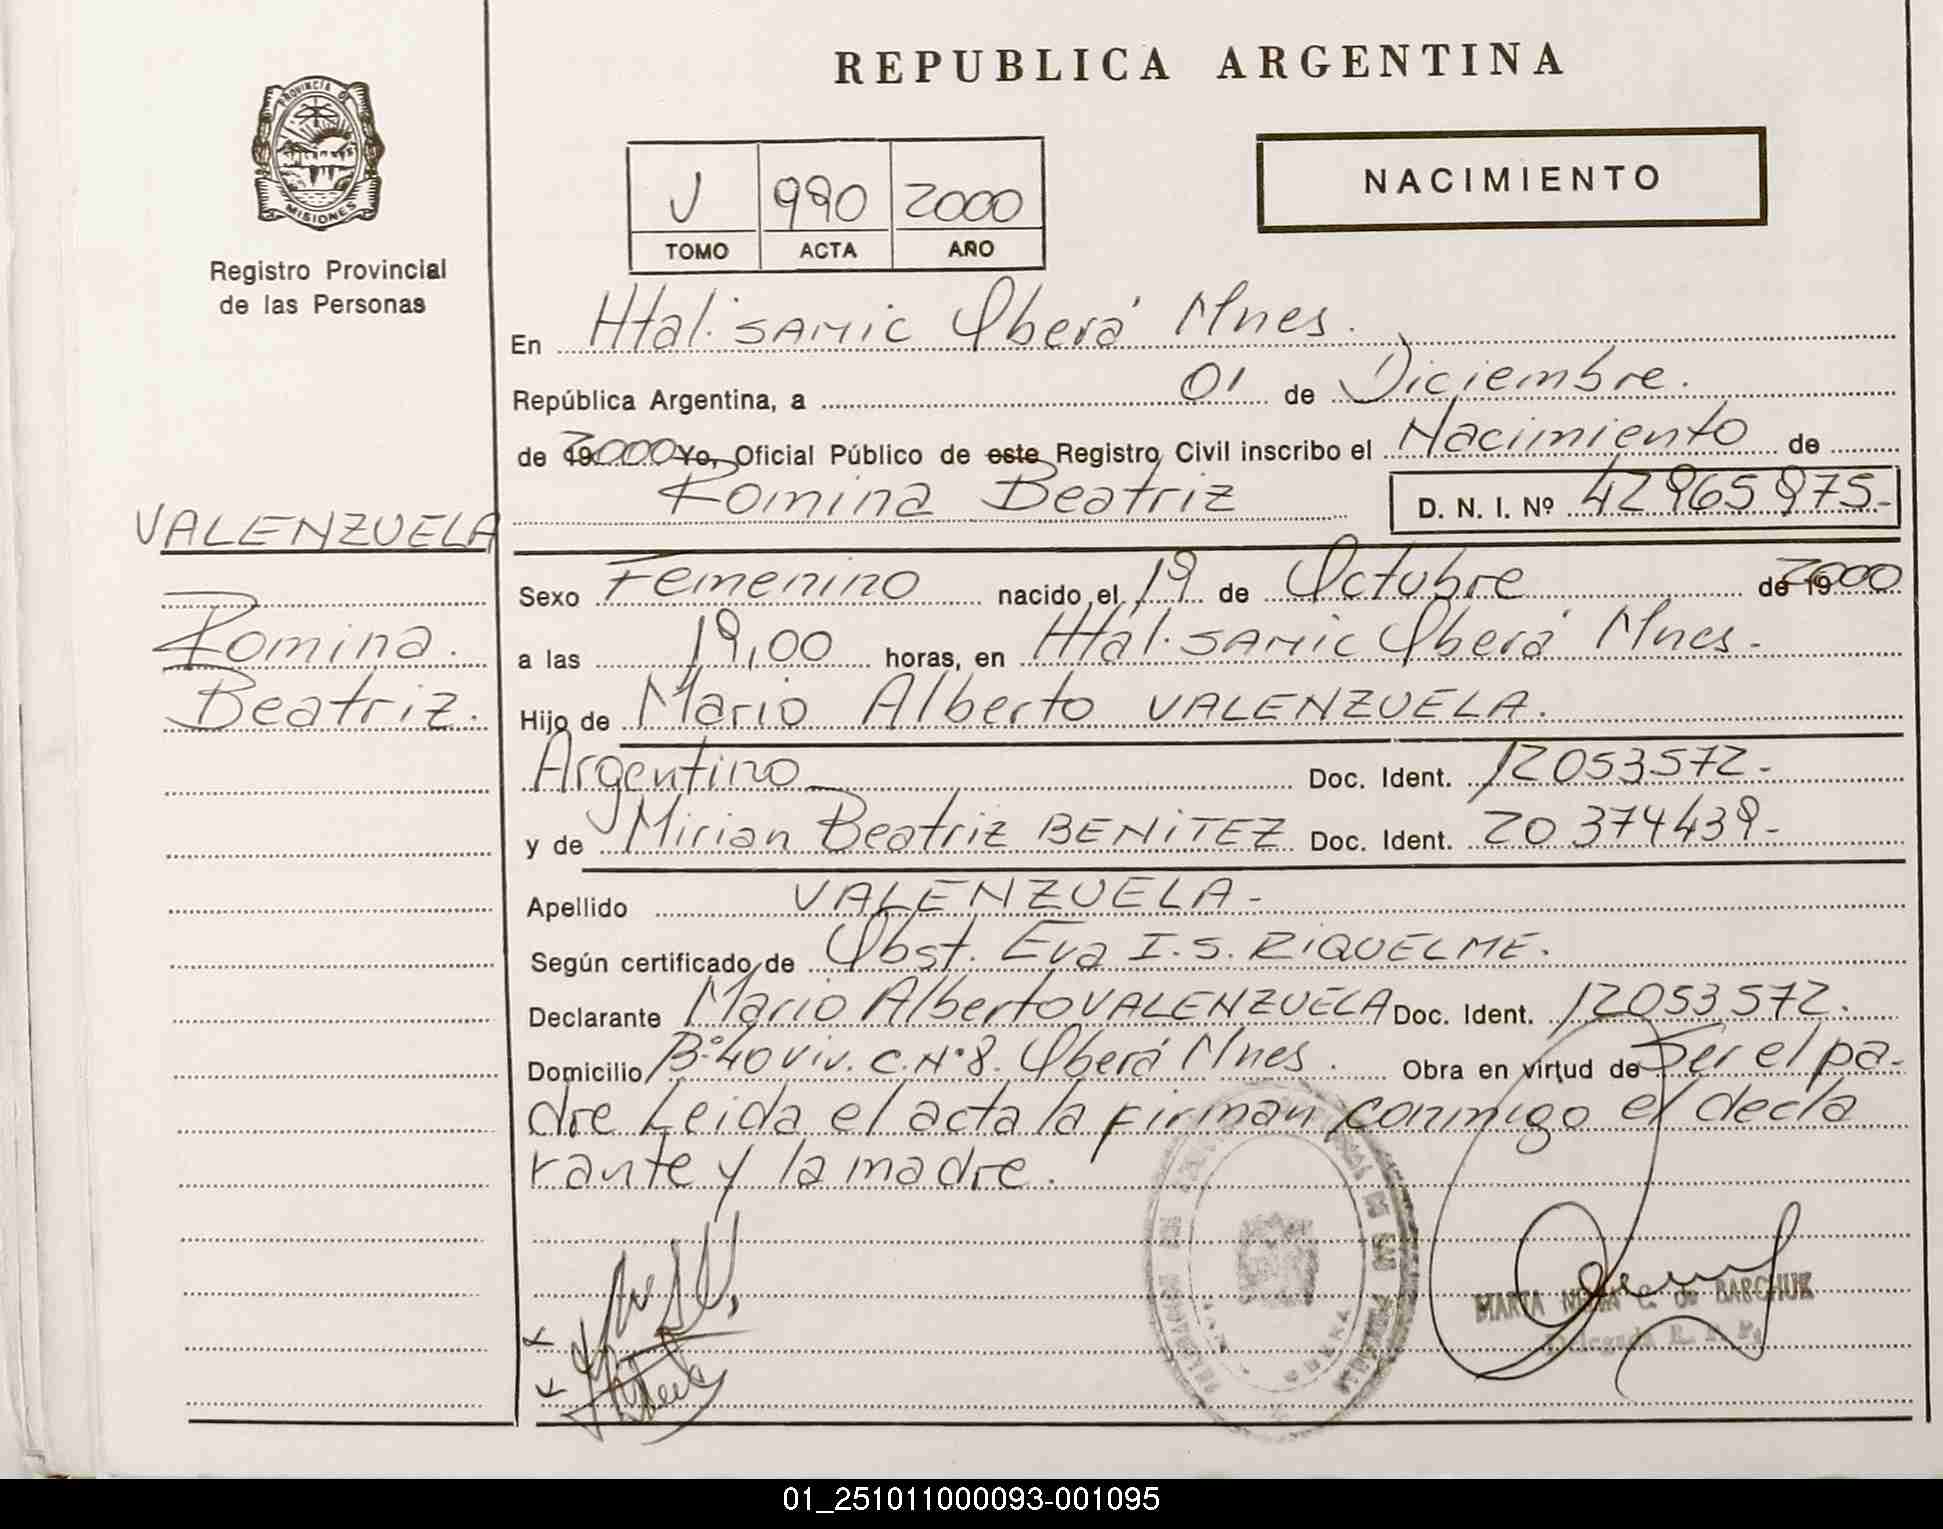 REPUBLICA ARGENTINA
PROVINCIA DE
MISIONES
Registro Provincial
de las Personas
J 990 2000
TOMO ACTA AÑO
NACIMIENTO
En Htal. SAMIC Oberá Mnes.
República Argentina, a 01 de Diciembre.
de 2000 Yo, Oficial Público de este Registro Civil inscribo el Nacimiento de
Romina Beatriz D. N. I. Nº 42965975.-
VALENZUELA
Romina.
Beatriz.
Sexo Femenino nacido el 19 de Octubre de 2000
a las 19,00 horas, en Htal. SAMIC Oberá Mnes.
Hijo de Mario Alberto VALENZUELA.
Argentino Doc. Ident. 12053572.-
y de Mirian Beatriz BENITEZ Doc. Ident. 20374439-
Apellido VALENZUELA-
Según certificado de Obst. Eva I.S. RIQUELME.
Declarante Mario Alberto VALENZUELA Doc. Ident. 12053572.
Domicilio Bº 40 viv. C.Nº8. Oberá Mnes. Obra en virtud de Ser el pa-
dre Leida el acta la firman conmigo el decla
rante y la madre.
MARTA C. de BARCHUK
Delegada R. P. P.
01_251011000093-001095